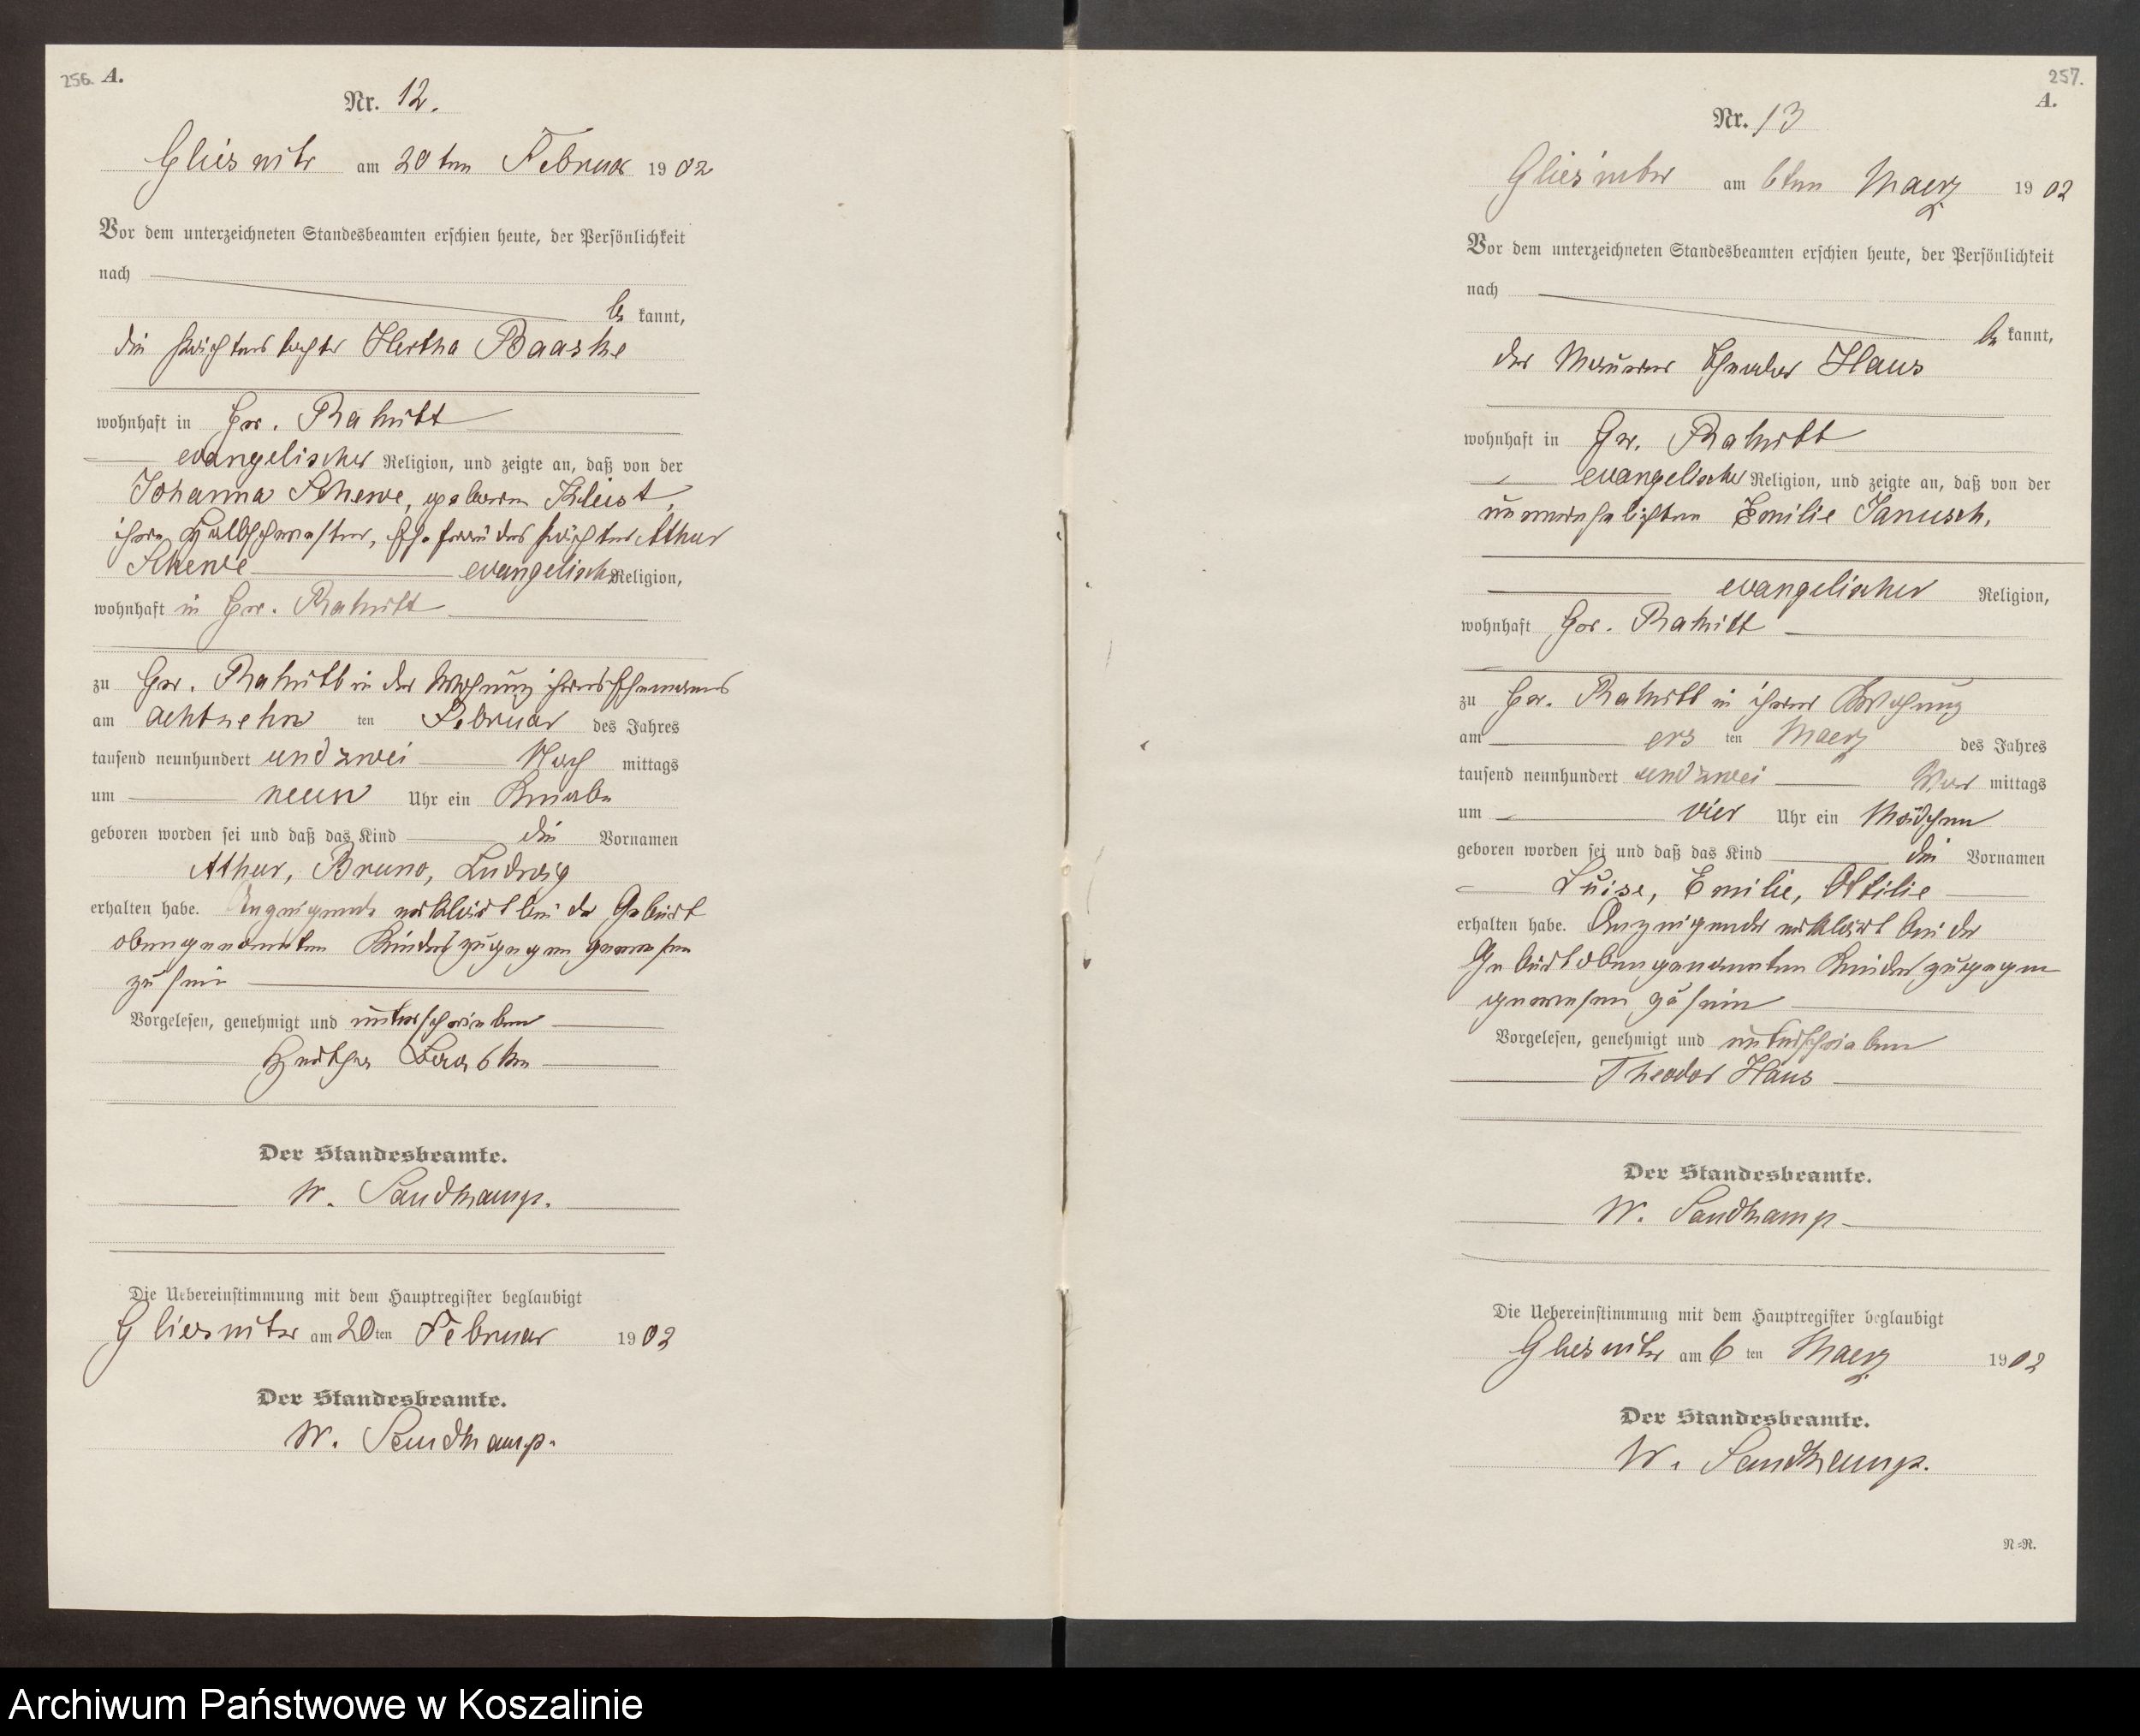 256. A.
Nr. 12.
Gliesnitz am 20ten Februar 1902
Vor dem unterzeichneten Standesbeamten erschien heute, der Persönlichkeit
nach
be kannt,
die Pächterstochter Hertha Baaske
wohnhaft in Gr. Rakitt
evangelischer Religion, und zeigte an, daß von der
Johanna Schewe, geborene Kleist,
ihrer Halbschwester, Ehefrau des Pächters Athur
Schewe evangelischer Religion,
wohnhaft in Gr. Rakitt
zu Gr. Rakitt in der Wohnung ihres Ehemanns
am achtzehn ten Februar des Jahres
tausend neunhundert und zwei Nach mittags
um neun Uhr ein Knabe
geboren worden sei und daß das Kind die Vornamen
Athur, Bruno, Ludwig
erhalten habe. Anzeigende erklärt bei der Geburt
obengenannten Kindes zugegen gewesen
zu sein
Vorgelesen, genehmigt und unterschrieben
Hertha Baaske
Der Standesbeamte.
W. Sandkamp.
Die Uebereinstimmung mit dem Hauptregister beglaubigt
Gliesnitz am 20ten Februar 1902
Der Standesbeamte.
W. Sandkamp.
257.
A.
Nr. 13
Gliesnitz am 6ten Maerz 1902
Vor dem unterzeichneten Standesbeamten erschien heute, der Persönlichkeit
nach
be kannt,
der Maurer Theodor Haus
wohnhaft in Gr. Rakitt
evangelischer Religion, und zeigte an, daß von der
unverehelichten Emilie Janusch,
evangelischer Religion,
wohnhaft Gr. Rakitt
zu Gr. Rakitt in ihrer Wohnung
am ers ten Maerz des Jahres
tausend neunhundert und zwei Vor mittags
um vier Uhr ein Mädchen
geboren worden sei und daß das Kind die Vornamen
Luise, Emilie, Ottilie
erhalten habe. Anzeigender erklärt bei der
Geburt obengenannten Kindes zugegen
gewesen zu sein
Vorgelesen, genehmigt und unterschrieben
Theodor Haus
Der Standesbeamte.
W. Sandkamp
Die Uebereinstimmung mit dem Hauptregister beglaubigt
Gliesnitz am 6 ten Maerz 1902
Der Standesbeamte.
W. Sandkamp.
N=R.
Archiwum Państwowe w Koszalinie